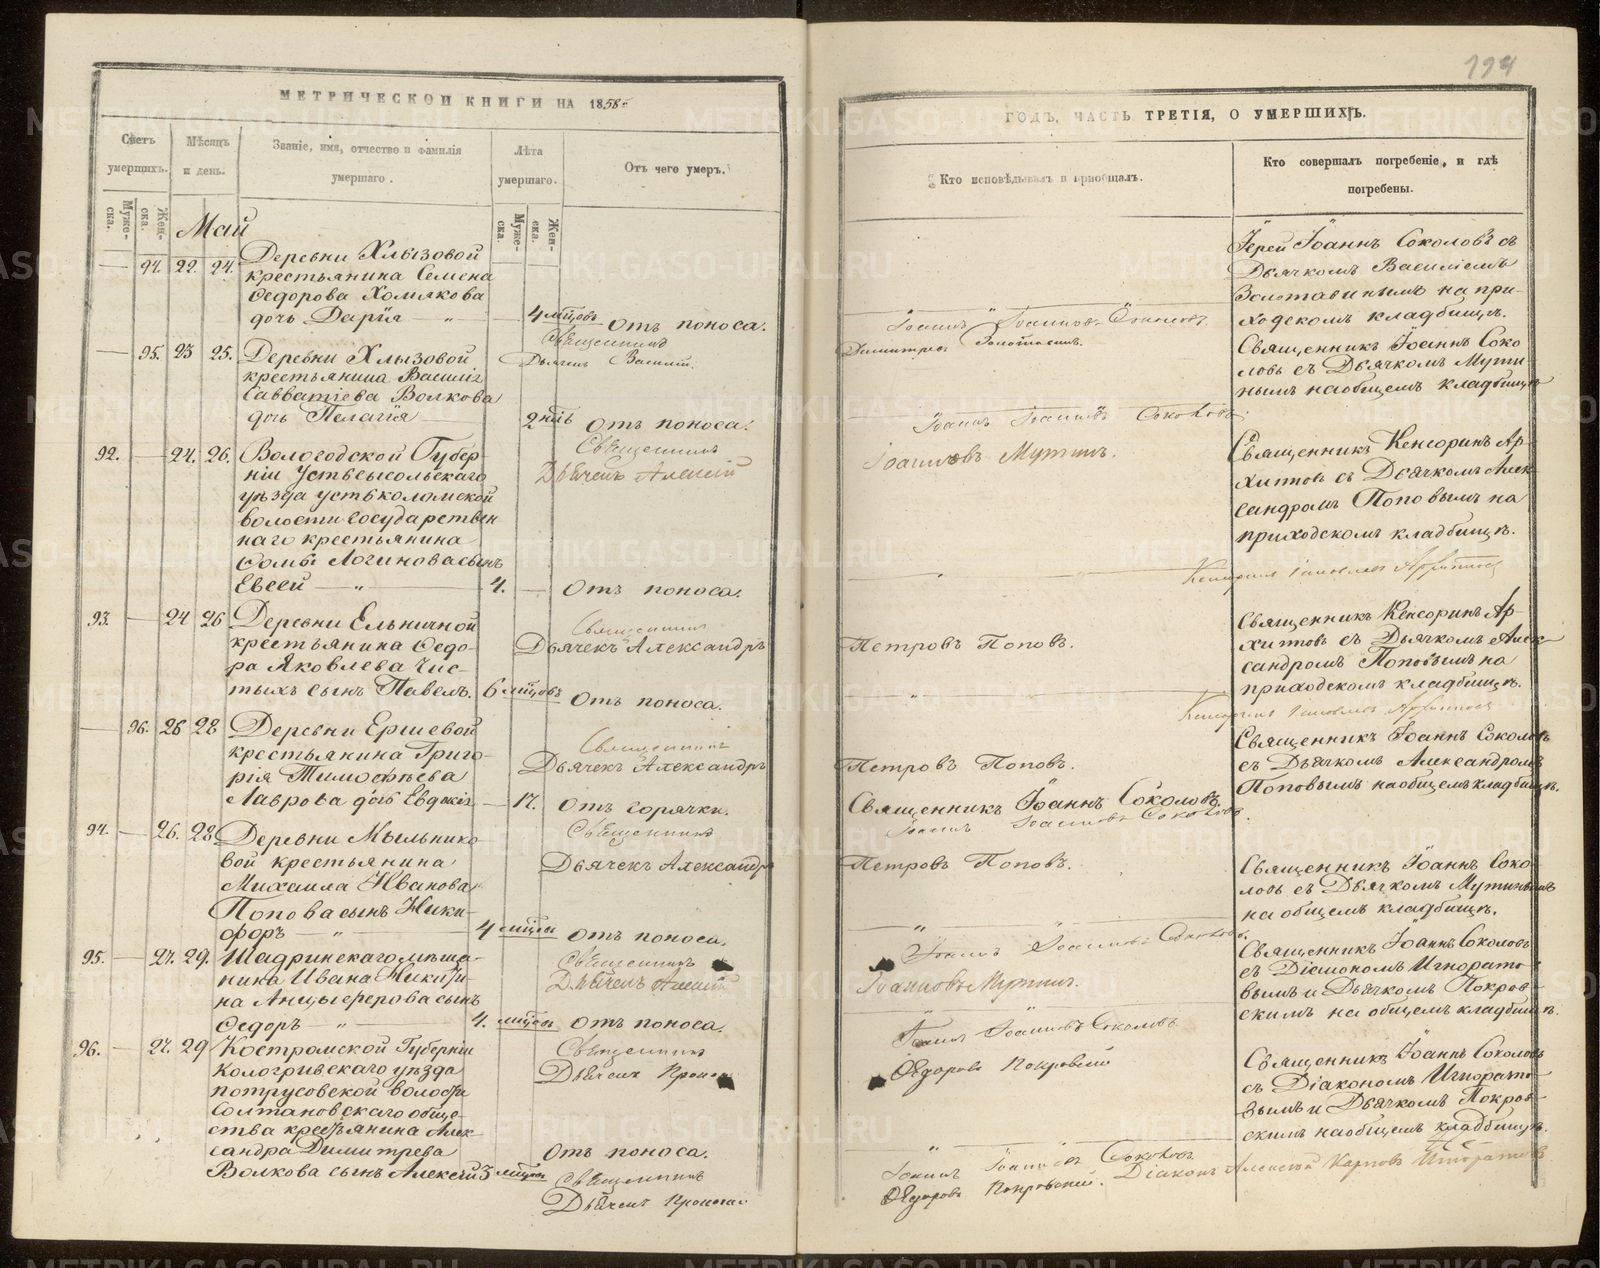 МЕТРИЧЕСКОЙ КНИГИ НА 1858
Счетъ умершихъ.
Мѣсяцъ и день.
Званіе, имя, отчество и фамилія умершаго.
Лѣта умершаго.
Отъ чего умеръ.
Муже-ска.
Жен-ска.
Муже-ска.
Жен-ска.
Май
94. 22. 24. Деревни Хлызовой
крестьянина Семена
Ѳедорова Холмякова
дочь Дарія — " — 4 мѣцовъ Отъ поноса.
Священникъ
Дьячекъ Василій
95. 23 25. Деревни Хлызовой
крестьянина Василія
Савватіева Волкова
дочь Пелагія 2 Отъ поноса.
Священникъ
Дьячекъ Алексій
92. — 24. 26. Вологодской Губер-
ніи Устьсысольскаго
уѣзда Устьколомской
волости Государствен
наго крестьянина
Логинова сынъ
Евсей — " — 4. — Отъ поноса.
Священникъ
Дьячекъ Александръ
93. — 24 26 Деревни Ельничной
крестьянина Ѳедо-
ра Яковлева Чис-
тыхъ сынъ Павелъ. 6 мѣцовъ Отъ поноса.
Священникъ
Дьячекъ Александръ
— 96. 26 28 Деревни Ершевой
крестьянина Григо-
рія Тимофѣева
Лаврова дочь Евдокія — 17. Отъ горячки.
Священникъ
Дьячекъ Александръ
94. — 26. 28 Деревни Мыльнико
вой крестьянина
Михаила Иванова
Попова сынъ Ники-
форъ — " — 4 мѣцовъ Отъ поноса.
Священникъ
Дьячекъ Алексій
95. — 27. 29. Шадринскаго мѣща-
нина Ивана Никити-
на Анцыферова сынъ
Ѳедоръ — " — 4. мѣцовъ Отъ поноса.
Священникъ
Дьячекъ
96. — 27. 29 Костромской Губерніи
Кологривскаго уѣзда
потрусовской волости
Солтановскаго обще-
ства крестьянина Алек-
сандра Димитрева
Волкова сынъ Алексій 3 мѣцовъ Отъ поноса.
Священникъ
Дьячекъ
194
ГОДЪ, ЧАСТЬ ТРЕТІЯ, О УМЕРШИХЪ.
Кто исповѣдывалъ и пріобщалъ.
Кто совершалъ погребеніе, и гдѣ погребены.
Іерей Іоаннъ Соколовъ съ
Дьячкомъ Василіемъ
Золотавинымъ на при-
ходскомъ кладбищѣ.
Іоаннъ Іоанновъ Соколовъ.
Священникъ Іоаннъ Соко
ловъ съ Дьячкомъ Мути-
нымъ на общемъ кладбищѣ
Іоаннъ Іоанновъ Соколовъ.
Іоанновъ Мутинъ.
Священникъ Кенсоринъ Ар-
хиповъ съ Дьячкомъ Алек-
сандромъ Поповымъ на
приходскомъ кладбищѣ.
Петровъ Поповъ.
Священникъ Кенсоринъ Ар-
хиповъ съ Дьячкомъ Алек-
сандромъ Поповымъ на
приходскомъ кладбищѣ.
Петровъ Поповъ.
Священникъ Іоаннъ Соколовъ
съ Дьячкомъ Александромъ
Поповымъ на общемъ кладбищѣ.
Священникъ Іоаннъ Соколовъ.
Іоаннъ Іоанновъ Соколовъ.
Петровъ Поповъ.
Священникъ Іоаннъ Соко-
ловъ съ Дьячкомъ Мутинымъ
на общемъ кладбищѣ.
Іоаннъ Іоанновъ Соколовъ.
Іоанновъ Мутинъ.
Священникъ Іоаннъ Соколовъ
съ Діакономъ Игнорато-
вымъ и Дьячкомъ Покров-
скимъ на общемъ кладбищѣ.
Іоаннъ Іоанновъ Соколовъ
Ѳедоровъ Покровскій
Священникъ Іоаннъ Соколовъ
съ Діакономъ Игнорато-
вымъ и Дьячкомъ Покров-
скимъ на общемъ кладбищѣ.
Іоаннъ Іоанновъ Соколовъ
Ѳедоровъ Покровскій. Діаконъ Алексѣй Карповъ Игноратовъ
METRIKI.GASO-URAL.RU